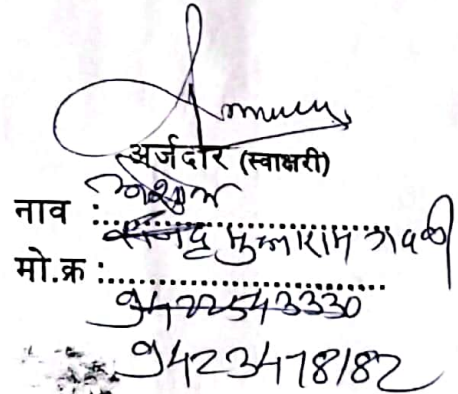 अर्जदार (स्वाक्षरी)
नाव :
मुक्ताराम गवळी
मो.क्र :
9422543330
9423478182